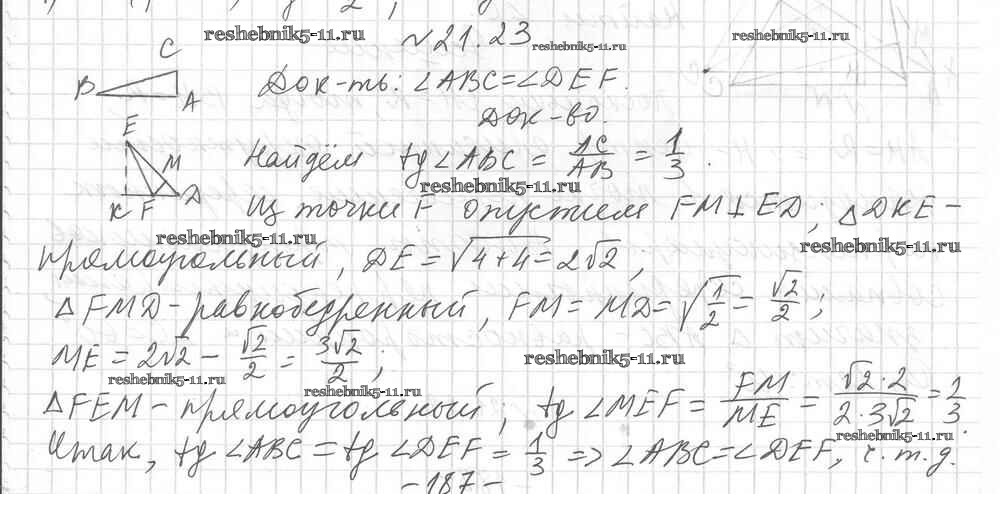 reshebnik5-11.ru №21.23 reshebnik5-11.ru reshebnik5-11.ru
C
B
A
Док-ть: ∠ABC=∠DEF.
Док-во.
E
M
K F D
Найдём tg∠ABC = AC/AB = 1/3.
reshebnik5-11.ru
Из точки F опустим FM⊥ED; △DKE-
reshebnik5-11.ru reshebnik5-11.ru
прямоугольный, DE = √(4+4) = 2√2;
△FMD-равнобедренный, FM = MD = √(1/2) = √2/2;
ME = 2√2 - √2/2 = 3√2/2;
reshebnik5-11.ru
reshebnik5-11.ru reshebnik5-11.ru
△FEM-прямоугольный; tg∠MEF = FM/ME = √2·2/2·3√2 = 1/3.
reshebnik5-11.ru
Итак, tg∠ABC = tg∠DEF = 1/3 => ∠ABC=∠DEF, ч.т.д.
-187-